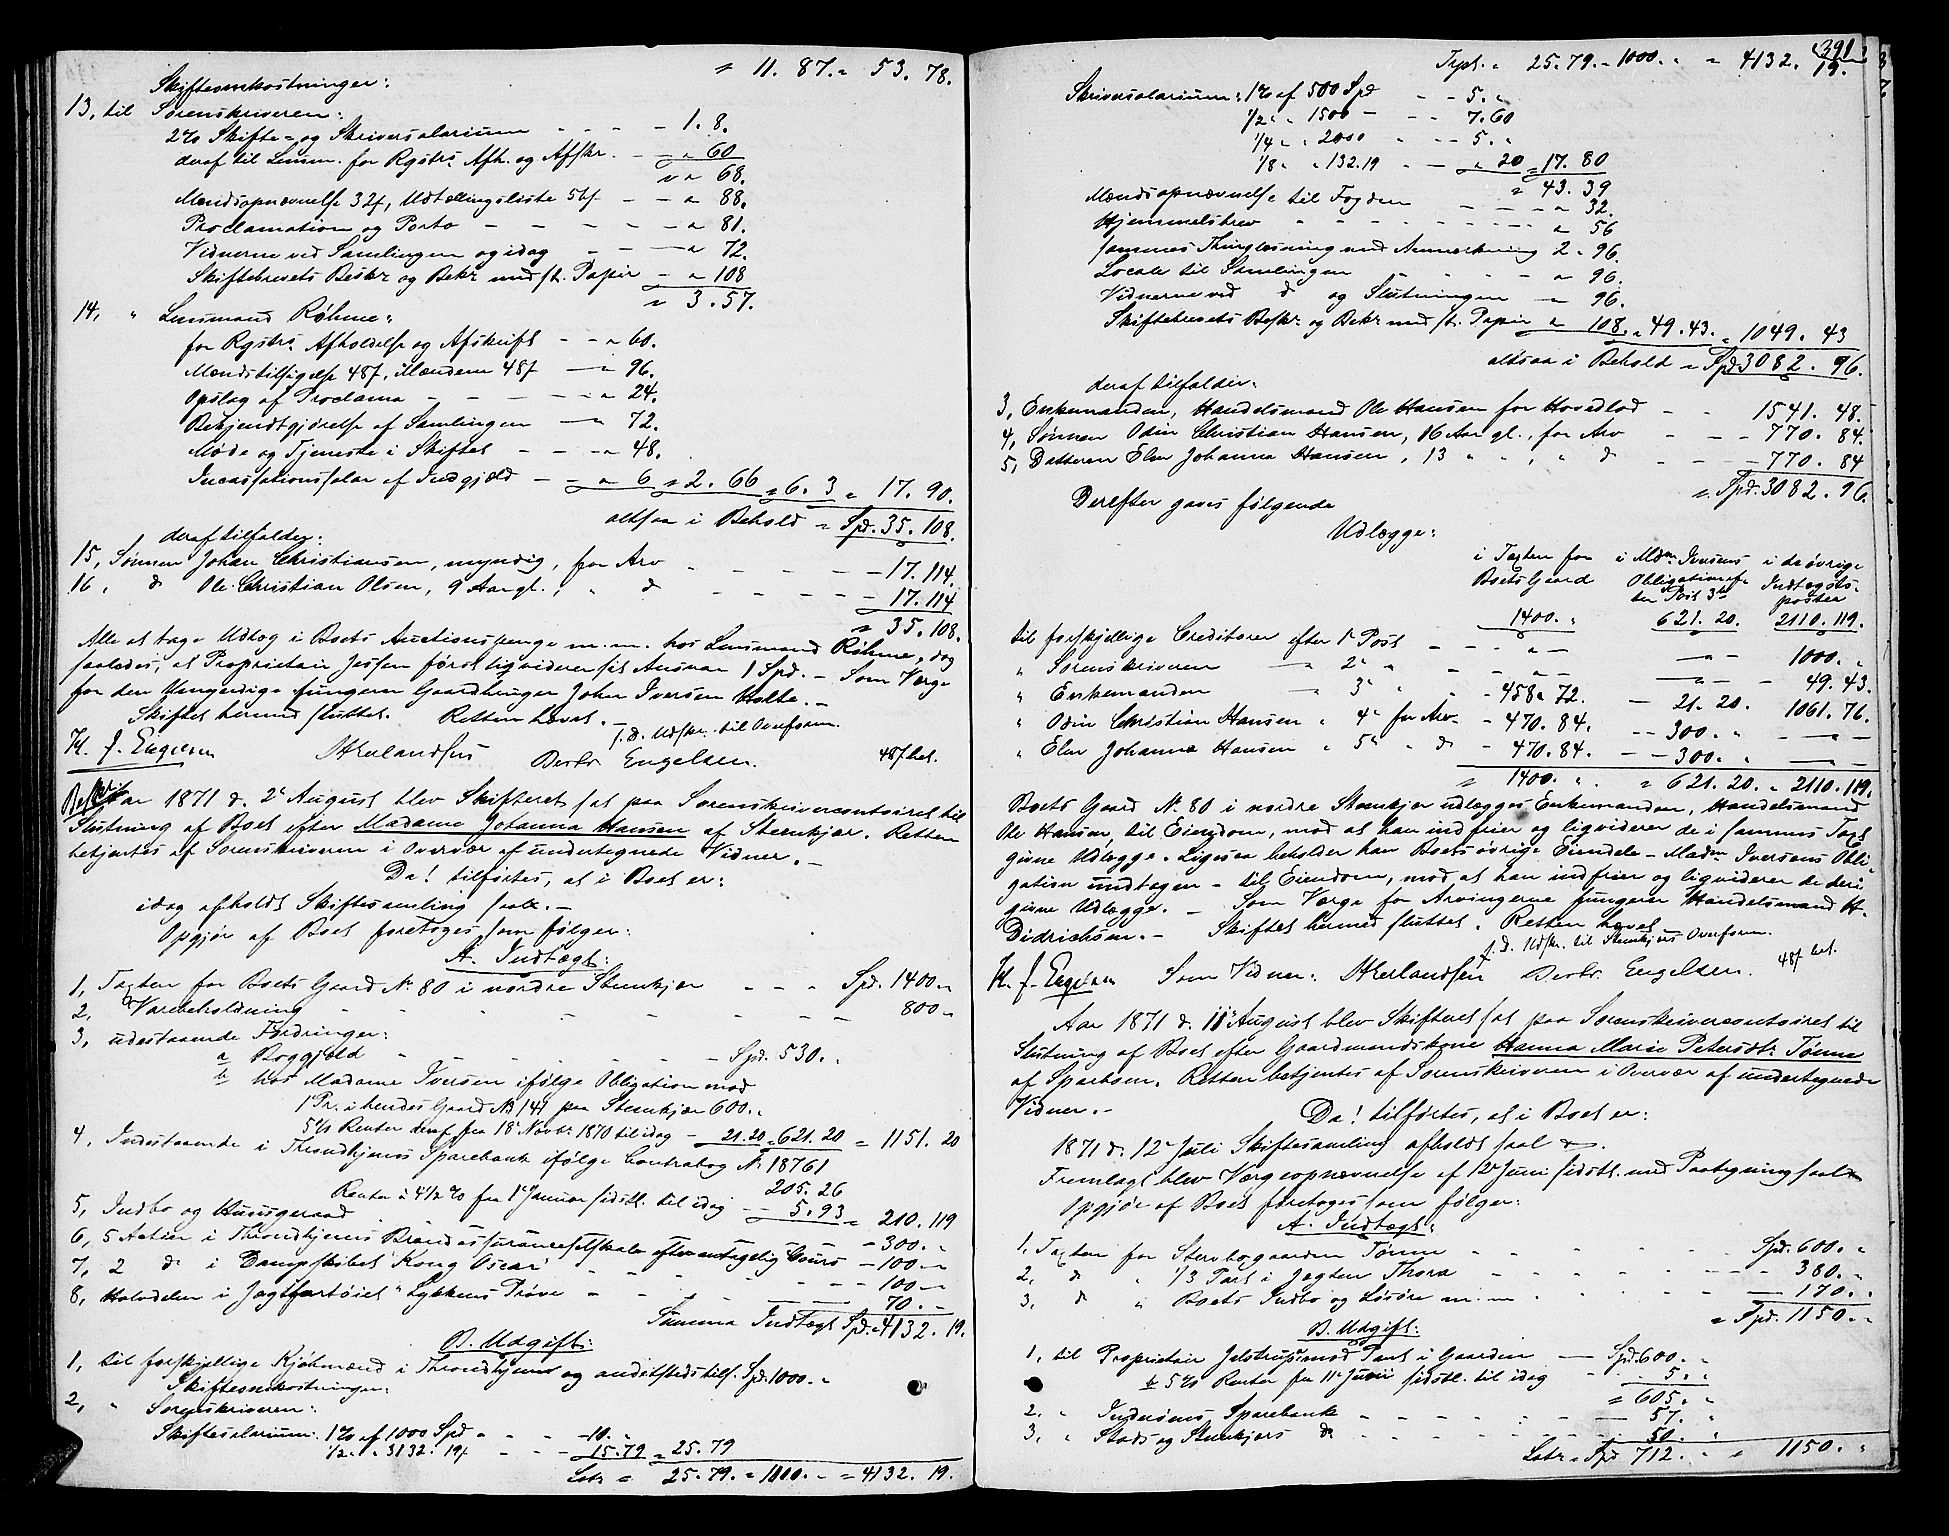 " 11. 87. " 53. 78.
Skifteomkostninger:
13, til Sorenskriveren:
2% Skifte- og Skriversalarium - - - - 1. 8.
deraf til Lensm. for Rgstrs Afh. og Afskr. - - " 60
" " 68.
Mændsopnævnelse 32ſ, Udtællingsliste 56ſ - - " 88.
Proclamation og Porto - - - - " 81.
Vidnerne ved Samlingen og idag - - " 72.
Skiftebrevets Beskr og Bekr med st. Papir - " 108
" 3. 57.
14, " Lensmand Röhme:
for Rgstrs Afholdelse og Afskrift - - " 60.
Mændstilsigelse 48ſ, Mændene 48ſ - " 96.
Opslag af Proclama - - - - " 24.
Bekjendtgjørelse af Samlingen - " 72.
Møde og Tjeneste i Skiftet - - - " 48.
Incassationssalar af Indgjæld - " 6 " 2. 66 " 6. 3 " 17. 90.
altsaa i Behold " Spd. 35. 108.
deraf tilfalder:
15, Sønnen Johan Christiansen, myndig, for Arv - - - - 17. 114.
16, d Ole Christian Olsen, 9 Aar gl., " d - - - - 17. 114
" 35. 108.
Alle at tage Udlæg i Boets Auctionspenge m. m. hos Lensmand Röhme, dog
saaledes, at Proprietair Jessen først ligviderer sit Ansvar 1 Spd. - Som Værge
for den Umyndige fungerer Gaardbruger John Iversen Holte. -
Skiftet hermed sluttet. Retten hævet. -
f. d. Udskr. til Overform.
48ſ bet.
H. J. Engelsen
Derbr. Engelsen.
Beskr. Aar 1871 d. 2 August blev Skifteret sat paa Sorenskrivercontoiret til
Slutning af Boet efter Madame Johanna Hansen af Steenkjær. Retten
betjentes af Sorenskriveren i Overvær af undertegnede Vidner. -
Da! tilførtes, at i Boet er:
idag afholdt Skiftesamling saal. -
Opgjør af Boet foretoges som følger:
A. Indtægt:
1, Taxten for Boets Gaard No 80 i nordre Steenkjær - - - Spd. 1400. "
2, Varebeholdning - - - - - - - 800 "
3, udestaaende Fordringer:
a Boggjæld - - - - - - Spd. 530. "
b hos Madame Iversen ifølge Obligation mod
1 Pr. i hendes Gaard No 141 paa Steenkjær 600. "
5% Renter deraf fra 18 Novbr 1870 til idag - 21. 20 " 621. 20 " 1151. 20
4, Indestaaende i Throndhjems Sparebank ifølge Contrabog No 18761
205. 26
Renter à 4½ % fra 1 Januar sidstl. til idag - 5. 93 " 210. 119
5, Indbo og Huusgeraad - - - 300. "
6, 5 Actier i Throndhjems Brandassuranceselskab efter antagelig Cours - 100 "
7, 2 d i Dampskibet "Kong Oscar" - - - - 100 "
8, Halvdelen i Jagtfartøiet "Lykkens Prøve - - - - 70. -
Summa Indtægt Spd. 4132. 19.
B. Udgift:
1, til forskjellige Kjøbmænd i Throndhjem og andetsteds tils. Spd. 1000. "
Skifteomkostninger:
2, " Sorenskriveren:
Skiftesalarium: 1% af 1000 Spd " - - - 10. "
½ " " 3132. 19ſ - - 15. 79 " 25. 79
Latr " 25. 79. " 1000. " " 4132. 19.
391
Trpt. " 25. 79. " 1000. " " 4132. 19.
Skriversalarium: 1% af 500 Spd - - 5. "
½ " " 1500 - - - 7. 60
¼ " " 2000 - - 5. "
⅛ " " 132. 19 - - " 20 " 17. 80
" 43. 39
Mændsopnævnelse til Fogden - - - - " 32.
Hjemmelsbrev - - - - - - " 56
sammes Thinglæsning med Anmærkning 2 " 96.
Locale til Samlingen - - - - " 96.
Vidnerne ved d og Slutningen - " 96.
Skiftebrevets Beskr og Bekr med st. Papir " 108. " 49. 43. " 1049. 43
altsaa i Behold " Spd. 3082. 96.
deraf tilfalder:
3, Enkemanden, Handelsmand Ole Hansen for Hovedlod - - 1541. 48.
4, Sønnen Odin Christian Hansen, 16 Aar gl., for Arv - - - 770. 84.
5, Datteren Elen Johanna Hansen, 13 " ", " d - - - 770. 84
" Spd. 3082. 96.
Derefter gaves følgende
Udlægge:
i Taxten for i Mdm Iversens i de øvrige
Boets Gaard Obligation ef- Indtægts-
ter Post 3b poster
1400. " 621. 20. 2110. 119.
til forskjellige Creditorer efter 1 Post - - - " - - " - 1000. "
" Sorenskriveren " 2 " - - - " - - " - 49. 43.
" Enkemanden " 3 " - 458 " 72. - 21. 20. 1061. 76.
" Odin Christian Hansen " 4 " for Arv - 470. 84. - - 300. " - " -
" Elen Johanna Hansen " 5 " " d - 470. 84. - - 300. " - " -
" 1400. " " 621. 20. " 2110. 119.
Boets Gaard No 80 i nordre Steenkjær udlægges Enkemanden, Handelsmand
Ole Hansen, til Eiendom, mod at han indfrier og ligviderer de i sammes Taxt
givne Udlægge. Ligesaa beholder han Boets øvrige Eiendele - Madm Iversens Obli-
gation undtagen - til Eiendom, mod at han indfrier og ligviderer de deri
givne Udlægge. - Som Værge for Arvingerne fungerer Handelsmand H.
Didrichsen. - Skiftet hermed sluttet. Retten hævet
f. d. Udskr. til Steenkjærs Overform.
48ſ bet.
H. J. Engelsen Som Vidner: Derbr. Engelsen.
Aar 1871 d. 11 August blev Skifteret sat paa Sorenskrivercontoiret til
Slutning af Boet efter Gaardmandskone Hanna Marie Petersdtr Tønne
af Sparboen. Retten betjentes af Sorenskriveren i Overvær af undertegnede
Vidner. -
Da! tilførtes, at i Boet er:
1871 d. 12 Juli Skiftesamling afholdt saal
Fremlagt blev Værgeopnævnelse af 12 Juni sidstl. med Paategning saal
Opgjør af Boet foretoges som følger:
A. Indtægt:
1, Taxten for Stervbogaarden Tønne - - - - Spd. 600. "
2, d " 1/3 Part i Jagten Thora - - - - 380. "
3, d " Boets Indbo og Løsøre m. m. - - - - 170. "
" Spd. 1150. "
B. Udgift:
1, til Proprietair Jelstrup mod Pant i Gaarden - Spd. 600. "
b 5% Renter fra 11 Juni sidstl. til idag - - 5. "
" 605. "
2, " Inderøens Sparebank - - - - - 57. "
3, " Stods og Steenkjærs d - - - - - 50. "
Latr " Spd 712. " " 1150. "